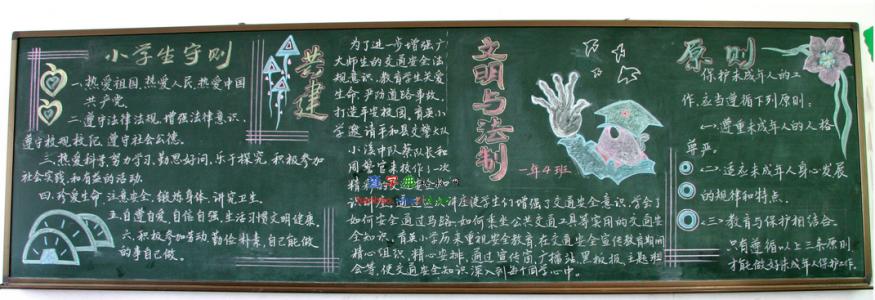 小学生守则
一、热爱祖国,热爱人民,热爱中国
共产党。
二、遵守法律法规,增强法律意识。
遵守校规校纪,遵守社会公德。
三、热爱科学,努力学习,勤思好问,乐于探究,积极参加
社会实践和有益的活动.
四、珍爱生命,注意安全,锻炼身体,讲究卫生.
五、自尊自爱,自信自强,生活习惯文明健康.
六、积极参加劳动,勤俭朴素,自己能做
的事自己做。
共建
为了进一步增强广
大师生的交通安全法
规意识,教育学生关爱
生命,严防道路事故,
打造平安校园,育英小
学邀请平和县交警大队
小溪中队蔡队长和
周警官来校作了一次
精彩
讲座使学生们增强了交通安全意识,学会了
如何安全通过马路、如何乘坐公共交通工具等实用的交通安
全知识。育英小学历来重视安全教育,在交通安全宣传教育期间
精心组织,精心安排,通过宣传窗、广播站、黑板报、主题班
会等,使交通安全知识深入到每个同学心中.
文明与法制
一年4班
原则
保护未成年人的工
作,应当遵循下列原则:
<一>尊重未成年人的人格
尊严。
<二>适应未成年人身心发展
的规律和特点.
<三>教育与保护相结合。
只有遵循以上三条原则
才能做好未成年人保护工作.